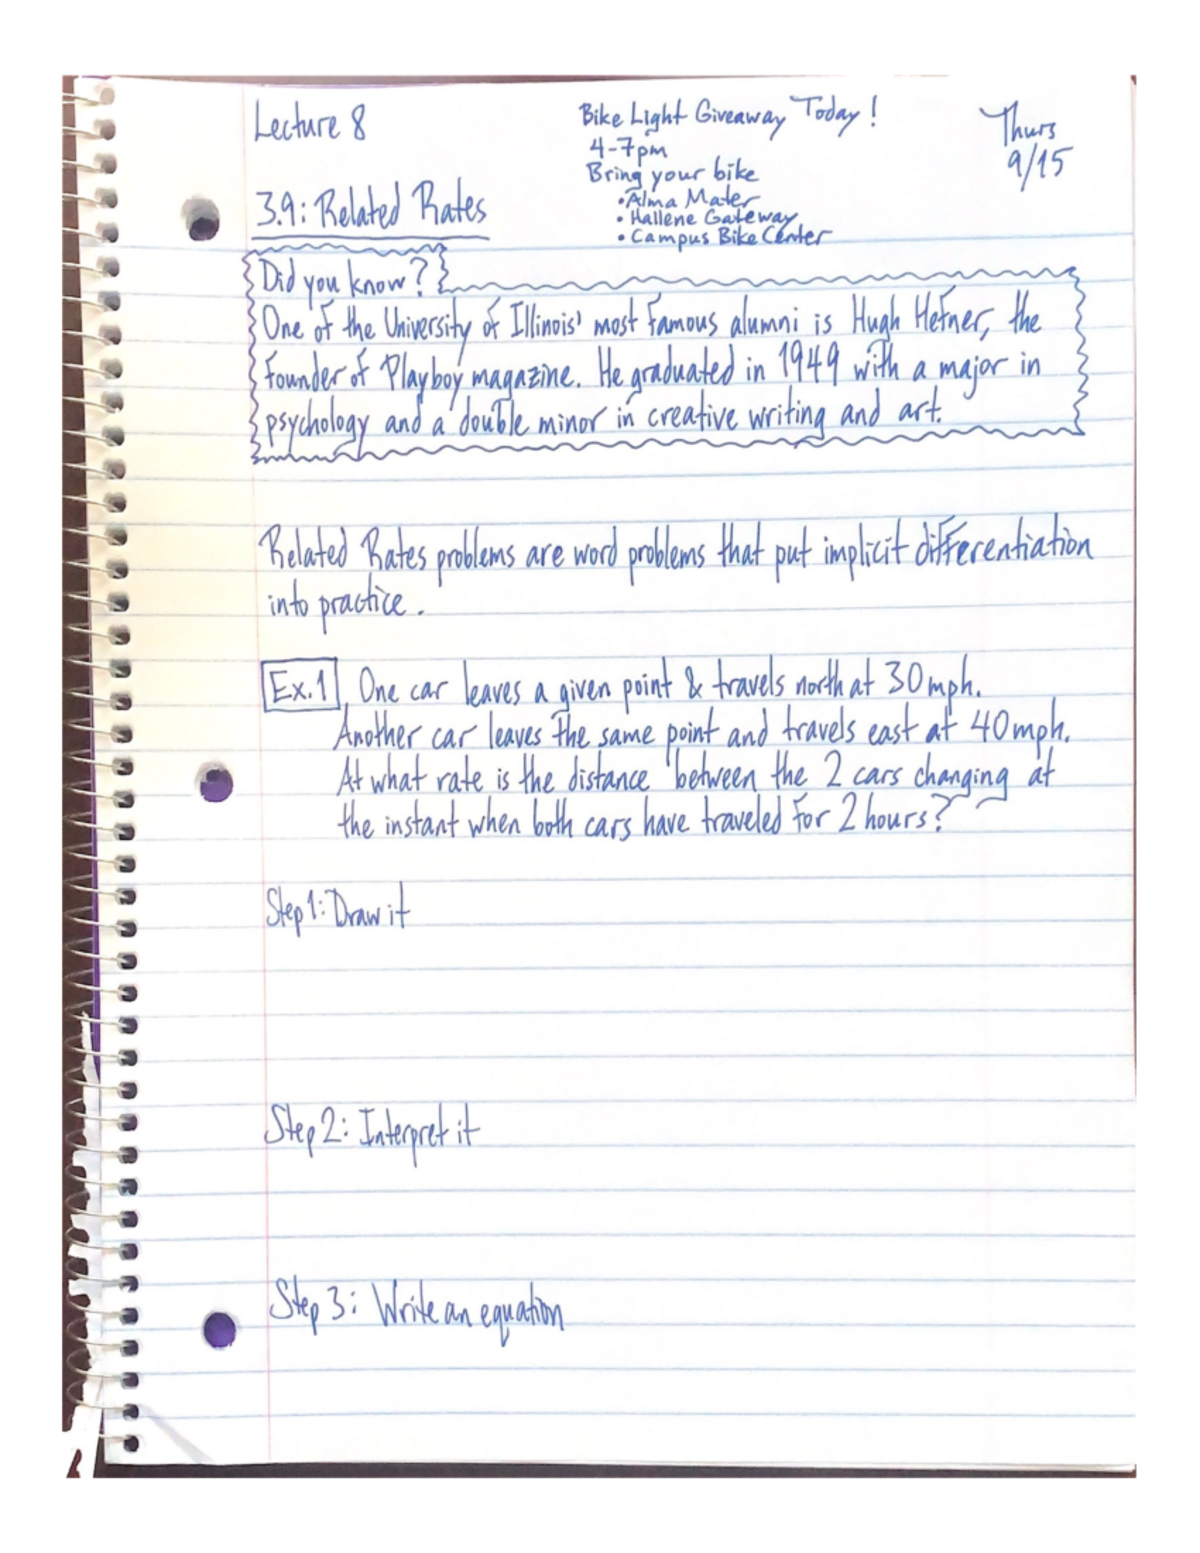 Lecture 8
Bike Light Giveaway Today!
4-7pm
Bring your bike
• Alma Mater
• Hallene Gateway
• Campus Bike Center
Thurs
9/15
3.9: Related Rates
Did you know?
One of the University of Illinois' most famous alumni is Hugh Hefner, the
founder of Playboy magazine. He graduated in 1949 with a major in
psychology and a double minor in creative writing and art.
Related Rates problems are word problems that put implicit differentiation
into practice.
Ex.1 One car leaves a given point & travels north at 30mph.
Another car leaves the same point and travels east at 40mph.
At what rate is the distance between the 2 cars changing at
the instant when both cars have traveled for 2 hours?
Step 1: Draw it
Step 2: Interpret it
Step 3: Write an equation